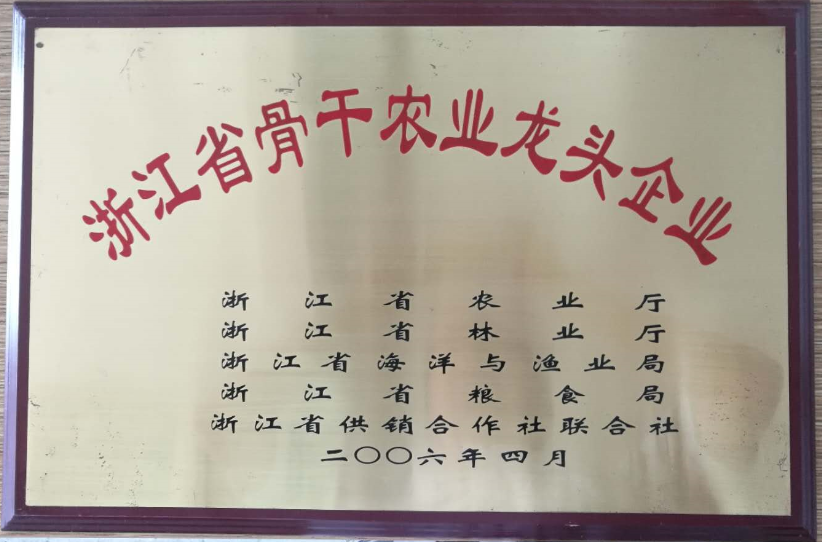 浙江省骨干农业龙头企业
浙江省农业厅
浙江省林业厅
浙江省海洋与渔业局
浙江省粮食局
浙江省供销合作社联合社
二〇〇六年四月